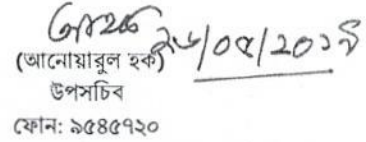 ২৮/০৫/২০১৭
(আনোয়ারুল হক)
উপসচিব
ফোন: ৯৫৪৫৭২০